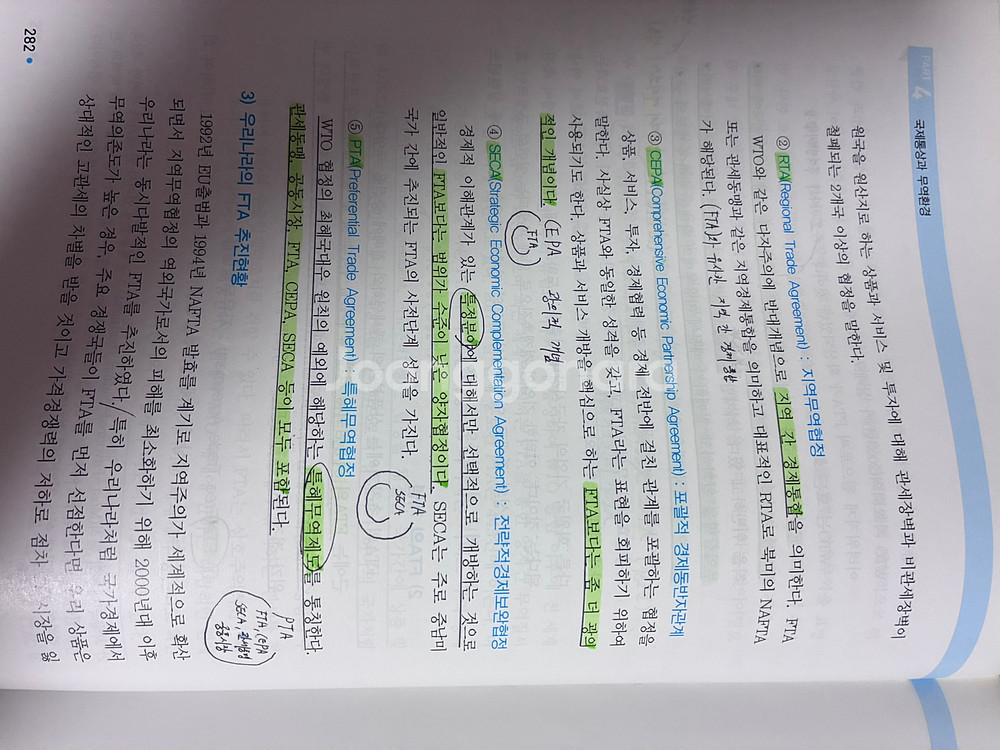 PART 4 국제통상과 무역환경
원국을 원산지로 하는 상품과 서비스 및 투자에 대해 관세장벽과 비관세장벽이
철폐되는 2개국 이상의 협정을 말한다.
② RTA(Regional Trade Agreement) : 지역무역협정
WTO와 같은 다자주의에 반대개념으로 지역 간 경제통합을 의미한다. FTA
또는 관세동맹과 같은 지역경제통합을 의미하고 대표적인 RTA로 북미의 NAFTA
가 해당된다. (FTA)와 유사한 지역 간 경제통합
③ CEPA(Comprehensive Economic Partnership Agreement) : 포괄적 경제동반자관계
상품, 서비스, 투자, 경제협력 등 경제 전반에 걸친 관계를 포괄하는 협정을
말한다. 사실상 FTA와 동일한 성격을 갖고, FTA라는 표현을 회피하기 위하여
사용되기도 한다. 상품과 서비스 개방을 핵심으로 하는 FTA보다는 좀 더 광의
적인 개념이다. CEPA 광의적 개념
FTA
④ SECA(Strategic Economic Complementation Agreement) : 전략적경제보완협정
경제적 이해관계가 있는 특정분야에 대해서만 선택적으로 개방하는 것으로
일반적인 FTA보다는 범위가 수준이 낮은 약자협정이다. SECA는 주로 중남미
국가 간에 추진되는 FTA의 사전단계 성격을 가진다.
FTA
SECA
⑤ PTA(Preferential Trade Agreement) : 특혜무역협정
WTO 협정의 최혜국대우 원칙의 예외에 해당하는 특혜무역제도를 통칭한다.
관세동맹, 공동시장, FTA, CEPA, SECA 등이 모두 포함된다.
PTA
FTA, CEPA
SECA 관세동맹
공동시장
3) 우리나라의 FTA 추진현황
1992년 EU출범과 1994년 NAFTA 발효를 계기로 지역주의가 세계적으로 확산
되면서 지역무역협정의 역외국가로서의 피해를 최소화하기 위해 2000년대 이후
우리나라는 동시다발적인 FTA를 추진하였다. / 특히 우리나라처럼 국가경제에서
무역의존도가 높은 경우, 주요 경쟁국들이 FTA를 먼저 선점한다면 우리 상품은
상대적인 고관세의 차별을 받을 것이고 가격경쟁력의 저하로 점차 시장을 잃
282